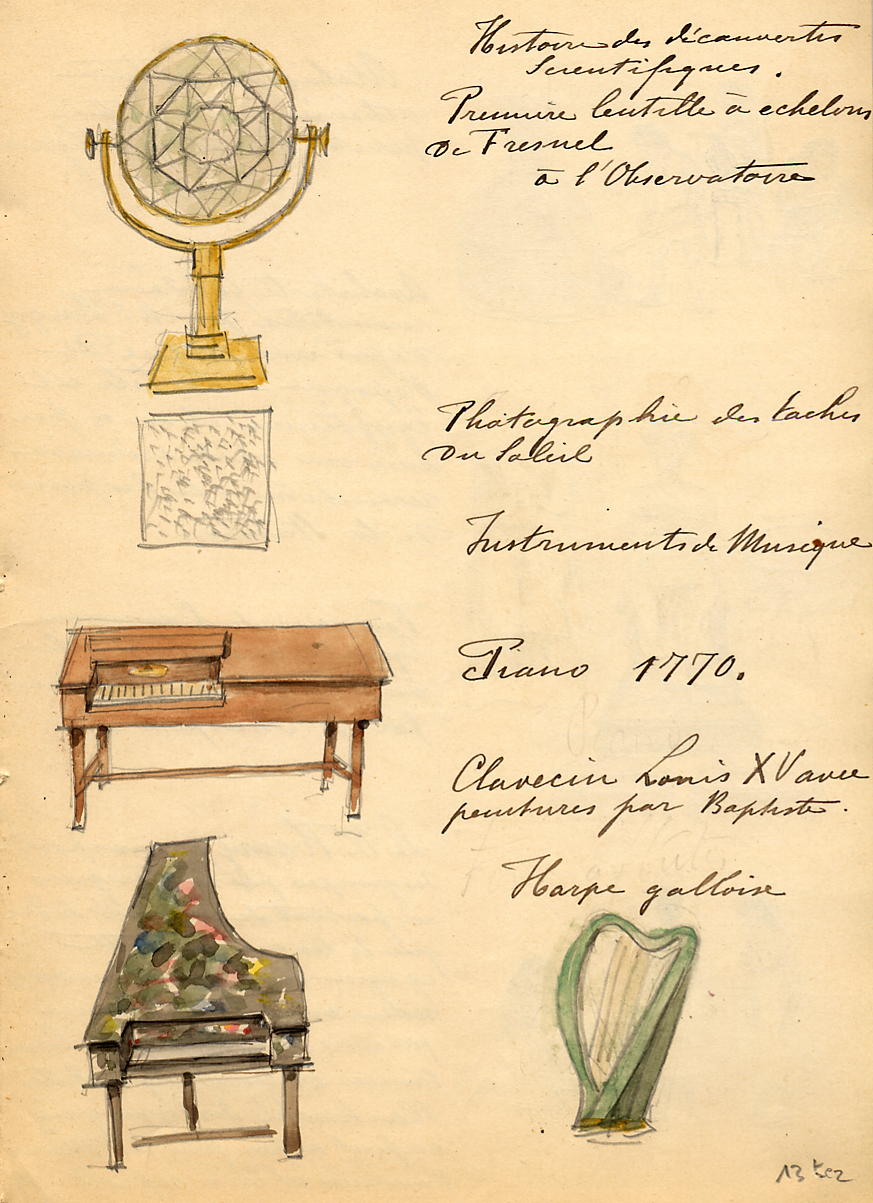 Histoire des découvertes
Scientifiques.
Première lentille à echelons
de Fresnel
à l'Observatoire
Photographie des taches
du Soleil
Instruments de Musique
Piano 1770.
Clavecin Louis XV avec
peintures par Baptiste.
Harpe galloise
13 ter